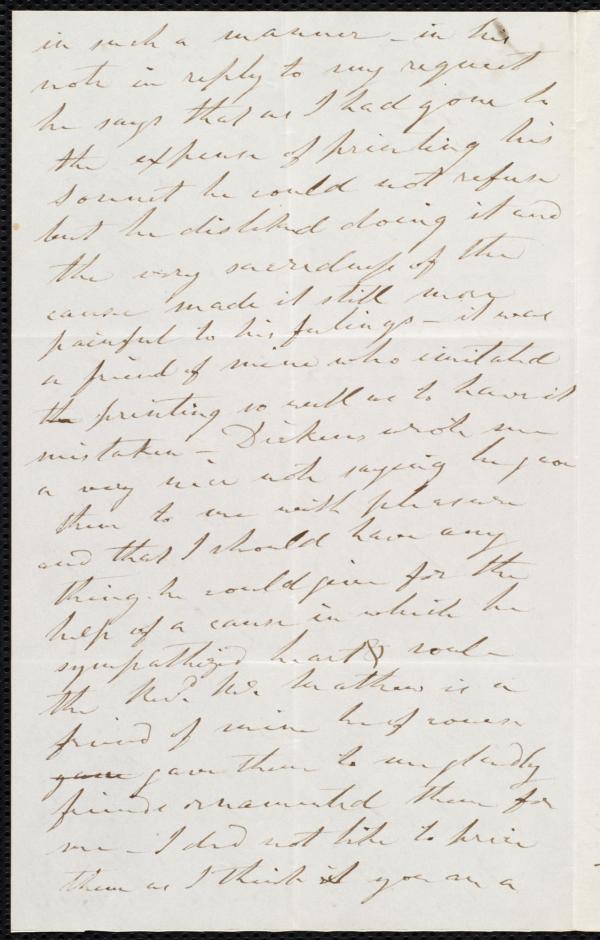 in such a manner - in his
note in reply to my request
he says that as I had gone to
the expense of printing his
sonnet he could not refuse
but he disliked doing it and
the very sacredness of the
cause made it still more
painful to his feelings - it was
a friend of mine who imitated
the printing so well as to have it
mistaken - Dickens wrote me
a very nice note saying he gave
them to me with pleasure
and that I should have any
thing he could give for the
help of a cause in which he
sympathized heart & soul -
the Revd. Mr. Mathews is a
friend of mine he of course
gave gave them to me gladly
friends ornamented them for
me - I did not like to price
them as I think it you are a